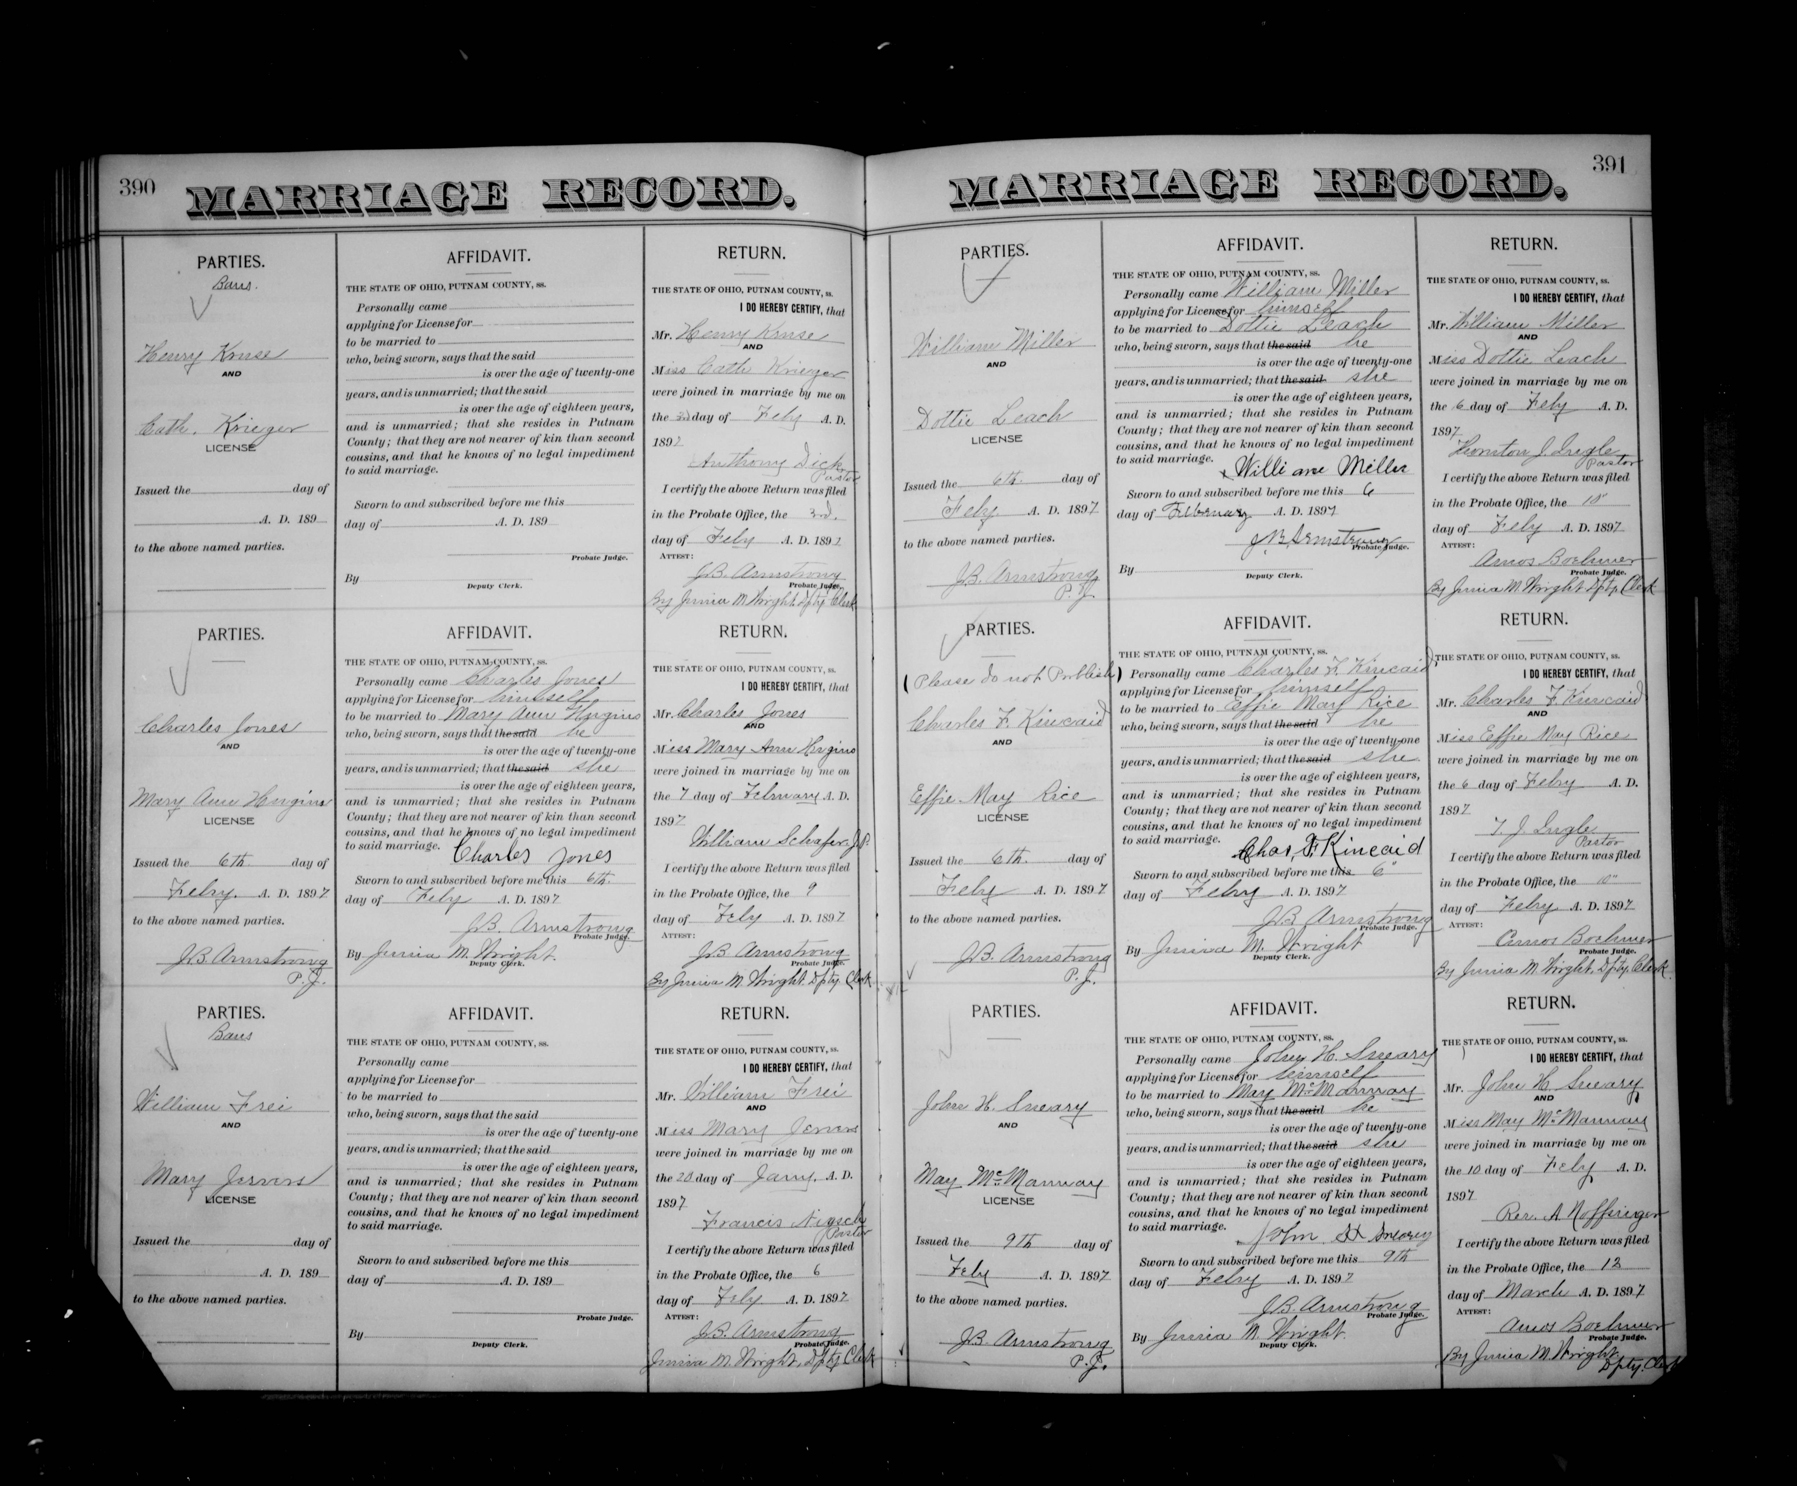 390
MARRIAGE RECORD.
PARTIES.
Bans.
Henry Kruse
AND
Cath. Krieger
LICENSE
Issued the day of
A. D. 189
to the above named parties.
AFFIDAVIT.
THE STATE OF OHIO, PUTNAM COUNTY, ss.
Personally came
applying for License for
to be married to
who, being sworn, says that the said
is over the age of twenty-one
years, and is unmarried; that the said
is over the age of eighteen years,
and is unmarried; that she resides in Putnam
County; that they are not nearer of kin than second
cousins, and that he knows of no legal impediment
to said marriage.
Sworn to and subscribed before me this
day of A. D. 189
Probate Judge.
By
Deputy Clerk.
RETURN.
THE STATE OF OHIO, PUTNAM COUNTY, ss.
I DO HEREBY CERTIFY, that
Mr. Henry Kruse
AND
Miss Cath Krieger
were joined in marriage by me on
the 3rd day of Feby A. D.
1897
Anthony Dick
Pastor
I certify the above Return was filed
in the Probate Office, the 3rd.
day of Feby A. D. 1897
ATTEST:
J.B. Armstrong
Probate Judge.
By Junia M. Wright Dpty Clerk
PARTIES.
Charles Jones
AND
Mary Ann Hugins
LICENSE
Issued the 6th day of
Feby. A. D. 1897
to the above named parties.
J.B. Armstrong
P.J.
AFFIDAVIT.
THE STATE OF OHIO, PUTNAM COUNTY, ss.
Personally came Charles Jones
applying for License for himself
to be married to Mary Ann Hugins
who, being sworn, says that the said he
is over the age of twenty-one
years, and is unmarried; that the said she
is over the age of eighteen years,
and is unmarried; that she resides in Putnam
County; that they are not nearer of kin than second
cousins, and that he knows of no legal impediment
to said marriage. Charles Jones
Sworn to and subscribed before me this 6th.
day of Feby A. D. 1897
J.B. Armstrong
Probate Judge.
By Junia M. Wright.
Deputy Clerk.
RETURN.
THE STATE OF OHIO, PUTNAM COUNTY, ss.
I DO HEREBY CERTIFY, that
Mr. Charles Jones
AND
Miss Mary Ann Hugins
were joined in marriage by me on
the 7 day of February A. D.
1897
William Schafer. J.P.
I certify the above Return was filed
in the Probate Office, the 9
day of Feby A. D. 1897
ATTEST:
J.B. Armstrong
Probate Judge.
By Junia M. Wright. Dpty. Clerk
PARTIES.
Bans
William Frei
AND
Mary
LICENSE
Issued the day of
A. D. 189
to the above named parties.
AFFIDAVIT.
THE STATE OF OHIO, PUTNAM COUNTY, ss.
Personally came
applying for License for
to be married to
who, being sworn, says that the said
is over the age of twenty-one
years, and is unmarried; that the said
is over the age of eighteen years,
and is unmarried; that she resides in Putnam
County; that they are not nearer of kin than second
cousins, and that he knows of no legal impediment
to said marriage.
Sworn to and subscribed before me this
day of A. D. 189
Probate Judge.
By
Deputy Clerk.
RETURN.
THE STATE OF OHIO, PUTNAM COUNTY, ss.
I DO HEREBY CERTIFY, that
Mr. William Frei
AND
Miss Mary
were joined in marriage by me on
the 20 day of Jany. A. D.
1897
Francis
Pastor
I certify the above Return was filed
in the Probate Office, the 6
day of Feby A. D. 1897
ATTEST:
J.B. Armstrong
Probate Judge.
Junia M. Wright. Dpty Clerk
391
MARRIAGE RECORD.
PARTIES.
William Miller
AND
Dottie Leach
LICENSE
Issued the 6th. day of
Feby. A. D. 1897
to the above named parties.
J.B. Armstrong
P.J.
AFFIDAVIT.
THE STATE OF OHIO, PUTNAM COUNTY, ss.
Personally came William Miller
applying for License for himself
to be married to Dottie Leach
who, being sworn, says that the said he
is over the age of twenty-one
years, and is unmarried; that the said she
is over the age of eighteen years,
and is unmarried; that she resides in Putnam
County; that they are not nearer of kin than second
cousins, and that he knows of no legal impediment
to said marriage. William Miller
Sworn to and subscribed before me this 6
day of February A. D. 1897
J.B. Armstrong
Probate Judge.
By
Deputy Clerk.
RETURN.
THE STATE OF OHIO, PUTNAM COUNTY, ss.
I DO HEREBY CERTIFY, that
Mr. William Miller
AND
Miss Dottie Leach
were joined in marriage by me on
the 6 day of Feby A. D.
1897
Thornton J. Ingle
Pastor
I certify the above Return was filed
in the Probate Office, the 10"
day of Feby A. D. 1897
ATTEST:
Amos Boehmer
Probate Judge.
By Junia M. Wright Dpty. Clerk
PARTIES.
(Please do not Publish)
Charles F. Kincaid
AND
Effie May Rice
LICENSE
Issued the 6th. day of
Feby A. D. 1897
to the above named parties.
J.B. Armstrong
P.J.
AFFIDAVIT.
THE STATE OF OHIO, PUTNAM COUNTY, ss.
Personally came Charles F. Kincaid
applying for License for himself
to be married to Effie May Rice
who, being sworn, says that the said he
is over the age of twenty-one
years, and is unmarried; that the said she
is over the age of eighteen years,
and is unmarried; that she resides in Putnam
County; that they are not nearer of kin than second
cousins, and that he knows of no legal impediment
to said marriage. Chas. F. Kincaid
Sworn to and subscribed before me this 6"
day of Febry A. D. 1897
J.B. Armstrong
Probate Judge.
By Junia M. Wright
Deputy Clerk.
RETURN.
THE STATE OF OHIO, PUTNAM COUNTY, ss.
I DO HEREBY CERTIFY, that
Mr. Charles F. Kincaid
AND
Miss Effie May Rice
were joined in marriage by me on
the 6 day of Febry A. D.
1897
T. J. Ingle
Pastor
I certify the above Return was filed
in the Probate Office, the 10"
day of Febry A. D. 1897
ATTEST:
Amos Boehmer
Probate Judge.
By Junia M. Wright. Dpty. Clerk.
PARTIES.
John H. Sneary
AND
May McMannay
LICENSE
Issued the 9th day of
Feby A. D. 1897
to the above named parties.
J.B. Armstrong
P.J.
AFFIDAVIT.
THE STATE OF OHIO, PUTNAM COUNTY, ss.
Personally came John H. Sneary
applying for License for himself
to be married to May McMannay
who, being sworn, says that the said he
is over the age of twenty-one
years, and is unmarried; that the said she
is over the age of eighteen years,
and is unmarried; that she resides in Putnam
County; that they are not nearer of kin than second
cousins, and that he knows of no legal impediment
to said marriage. John H Sneary
Sworn to and subscribed before me this 9th
day of Febry A. D. 1897
J.B. Armstrong
Probate Judge.
By Junia M. Wright.
Deputy Clerk.
RETURN.
THE STATE OF OHIO, PUTNAM COUNTY, ss.
I DO HEREBY CERTIFY, that
Mr. John H Sneary
AND
Miss May McMannay
were joined in marriage by me on
the 10 day of Feby A. D.
1897
Rev. A Noffsinger
I certify the above Return was filed
in the Probate Office, the 12
day of March A. D. 1897
ATTEST:
Amos Boehmer
Probate Judge.
By Junia M. Wright
Dpty. Clerk